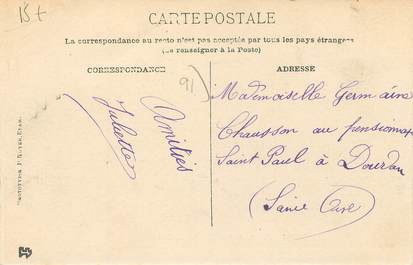 CARTE POSTALE
La correspondance au recto n'est pas acceptée par tous les pays étrangers
(Se renseigner à la Poste)
CORRESPONDANCE
ADRESSE
91
Amitiés
Juliette
Mademoiselle Germaine
Chausson au pensionnat
Saint Paul à Dourdan
(Seine Oise)